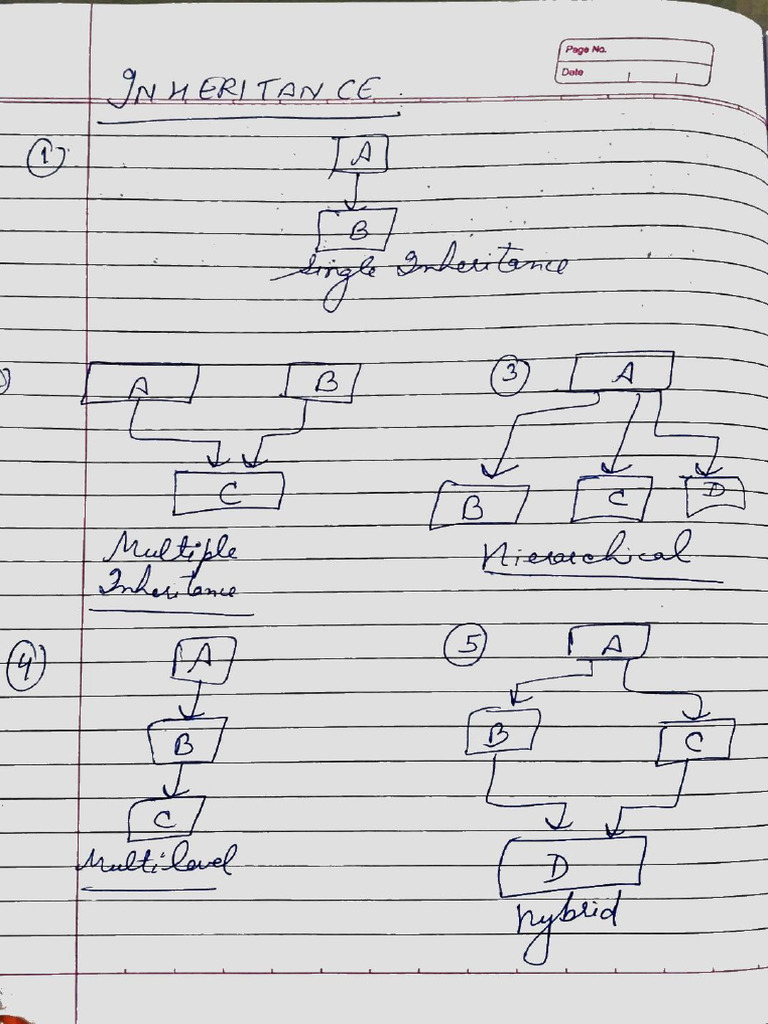 Page No.
Date
INHERITANCE
1
A
B
Single Inheritance
A B
C
Multiple
Inheritance
3
A
B C D
Hierarchical
4
A
B
C
Multilevel
5
A
B C
D
hybrid